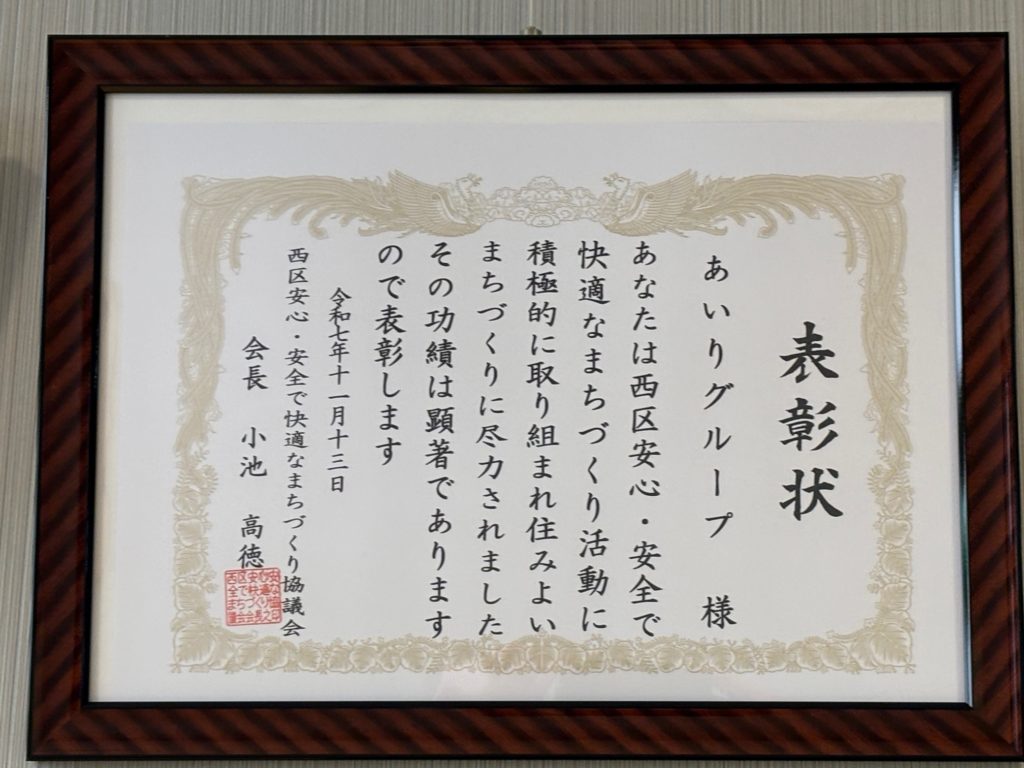 表彰状
あいりグループ 様
あなたは西区安心・安全で
快適なまちづくり活動に
積極的に取り組まれ住みよい
まちづくりに尽力されました
その功績は顕著であります
ので表彰します
令和七年十一月十三日
西区安心・安全で快適なまちづくり協議会
会長 小池 高徳